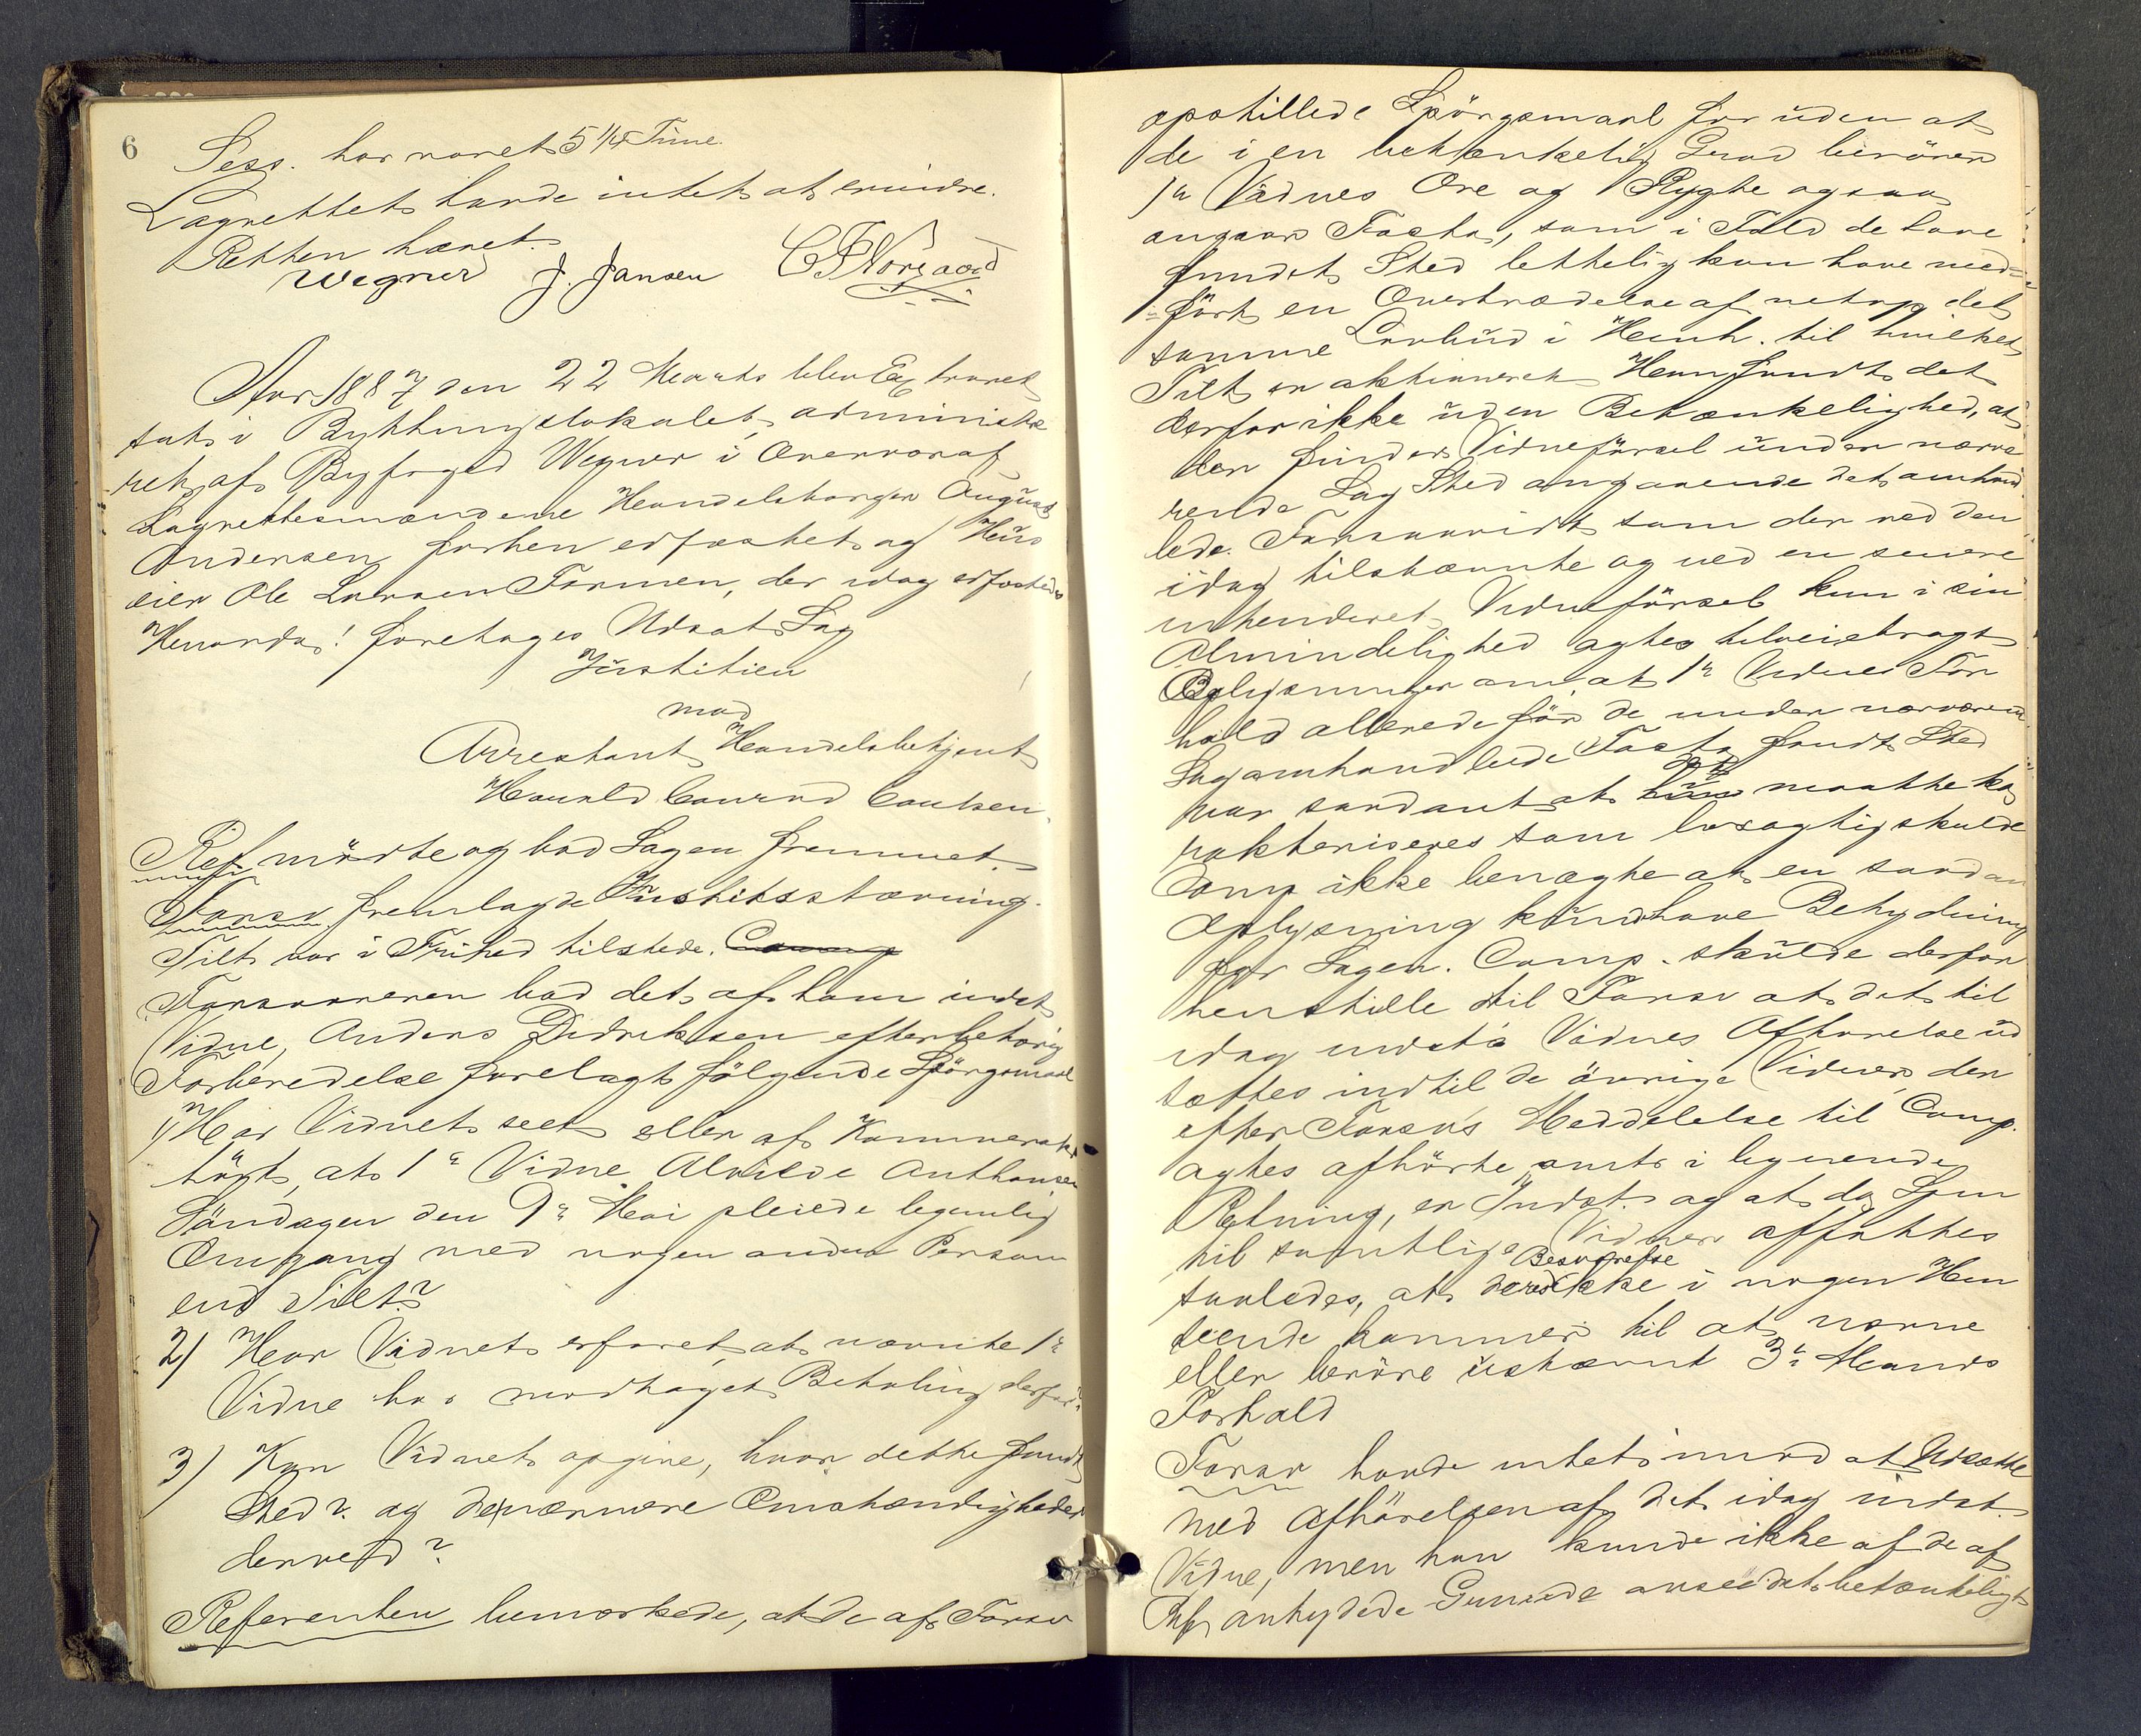 6
Sess. har varet 5 1/4 Time.
Lagrettet havde intet at erindre.
Retten hævet.
Wegner J. Jansen C F Norgaard
Aar 1887 den 22 Marts blev Ex traret
sat i Bythingslokalet, administre
ret af Byfoged Wegner i Overvær af
Lagrettesmændene Handelsborger August
Andersen forhen edfæstet og Huus
eier Ole Larsen Formen, der idag edfæstedes
Hvorda! foretages Udsat Sag
Justitien
mod
Arrestant Handelsbetjent
Harald Conrad Coulsen.
Ref mödte og bad Sagen fremmet.
Forsv fremlagde Justitsstævning.
Tilt var i Frihed tilstede.
Forsvareren bad det af ham indst
Vidne, Anders Didriksen efter behörig
Forberedelse forelagt fölgende Spörgsmaal
1) Har Vidnet seet eller af Kammerater
hört, at 1ste Vidne Alvilde Anthonsen
Söndagen den 9de Mai pleiede legemlig
Omgang med nogen anden Person
end Tilt?
2) Har Vidnet erfaret, at nævnte 1ste
Vidne har modtaget Betaling derfor?
3) Kan Vidnet opgive, hvor dette fandt
Sted? og de nærmere Omstændigheder
derved?
Referenten bemærkede, at de af Forsv
opstillede Spörgsmaal foruden at
de i en betænkelig Grad berörer
1ste Vidnes Ære og Rygte ogsaa
angaar Facta, som i Fald de have
fundet Sted lettelig kan have med-
-fört en Overtrædelse af netop det
samme Lovbud i Henh. til hvilket
Tilt er aktioneret. Han fandt det
derfor ikke uden Betænkelighed, at
der finder Vidneförsel under nærvæ
rende Sag Sted angaaende det omhand
lede. Forsaavidt som der ved den
idag tilstævnte og ved en senere
intenderet Vidneförsel kun i sin
Almindelighed agtes tilveiebragt
Oplysninger om, at 1ste Vidnes For
hold allerede för de under nærværende
Sag omhandlede Facta fandt Sted
var saadant at det maatte ka
rakteriseres som løsagtig skulde
Comp ikke benægte at en saadan
Oplysning kunde have Betydning
for Sagen. Comp. skulde derfor
henstille til Forsv at det til
idag indstæ Vidnes Afhörelse ud
sættes indtil de övrige Vidner, der
efter Forsv's Meddelelse til Comp.
agtes afhörte omtr i lignende
Retning, er Indst. og at da Spm
til samtlige Vidner affattes
saaledes, at Besvarelse deraf ikke i nogen Hen
seende kommer til at nævne
eller beröre ustævnt 3die Mands
Forhold
Forsv havde intet imod at Udsætte
med Afhörelsen af det idag indst.
Vidne, men han kunde ikke af de af
Ref antydede Grunde ansee det betænkeligt